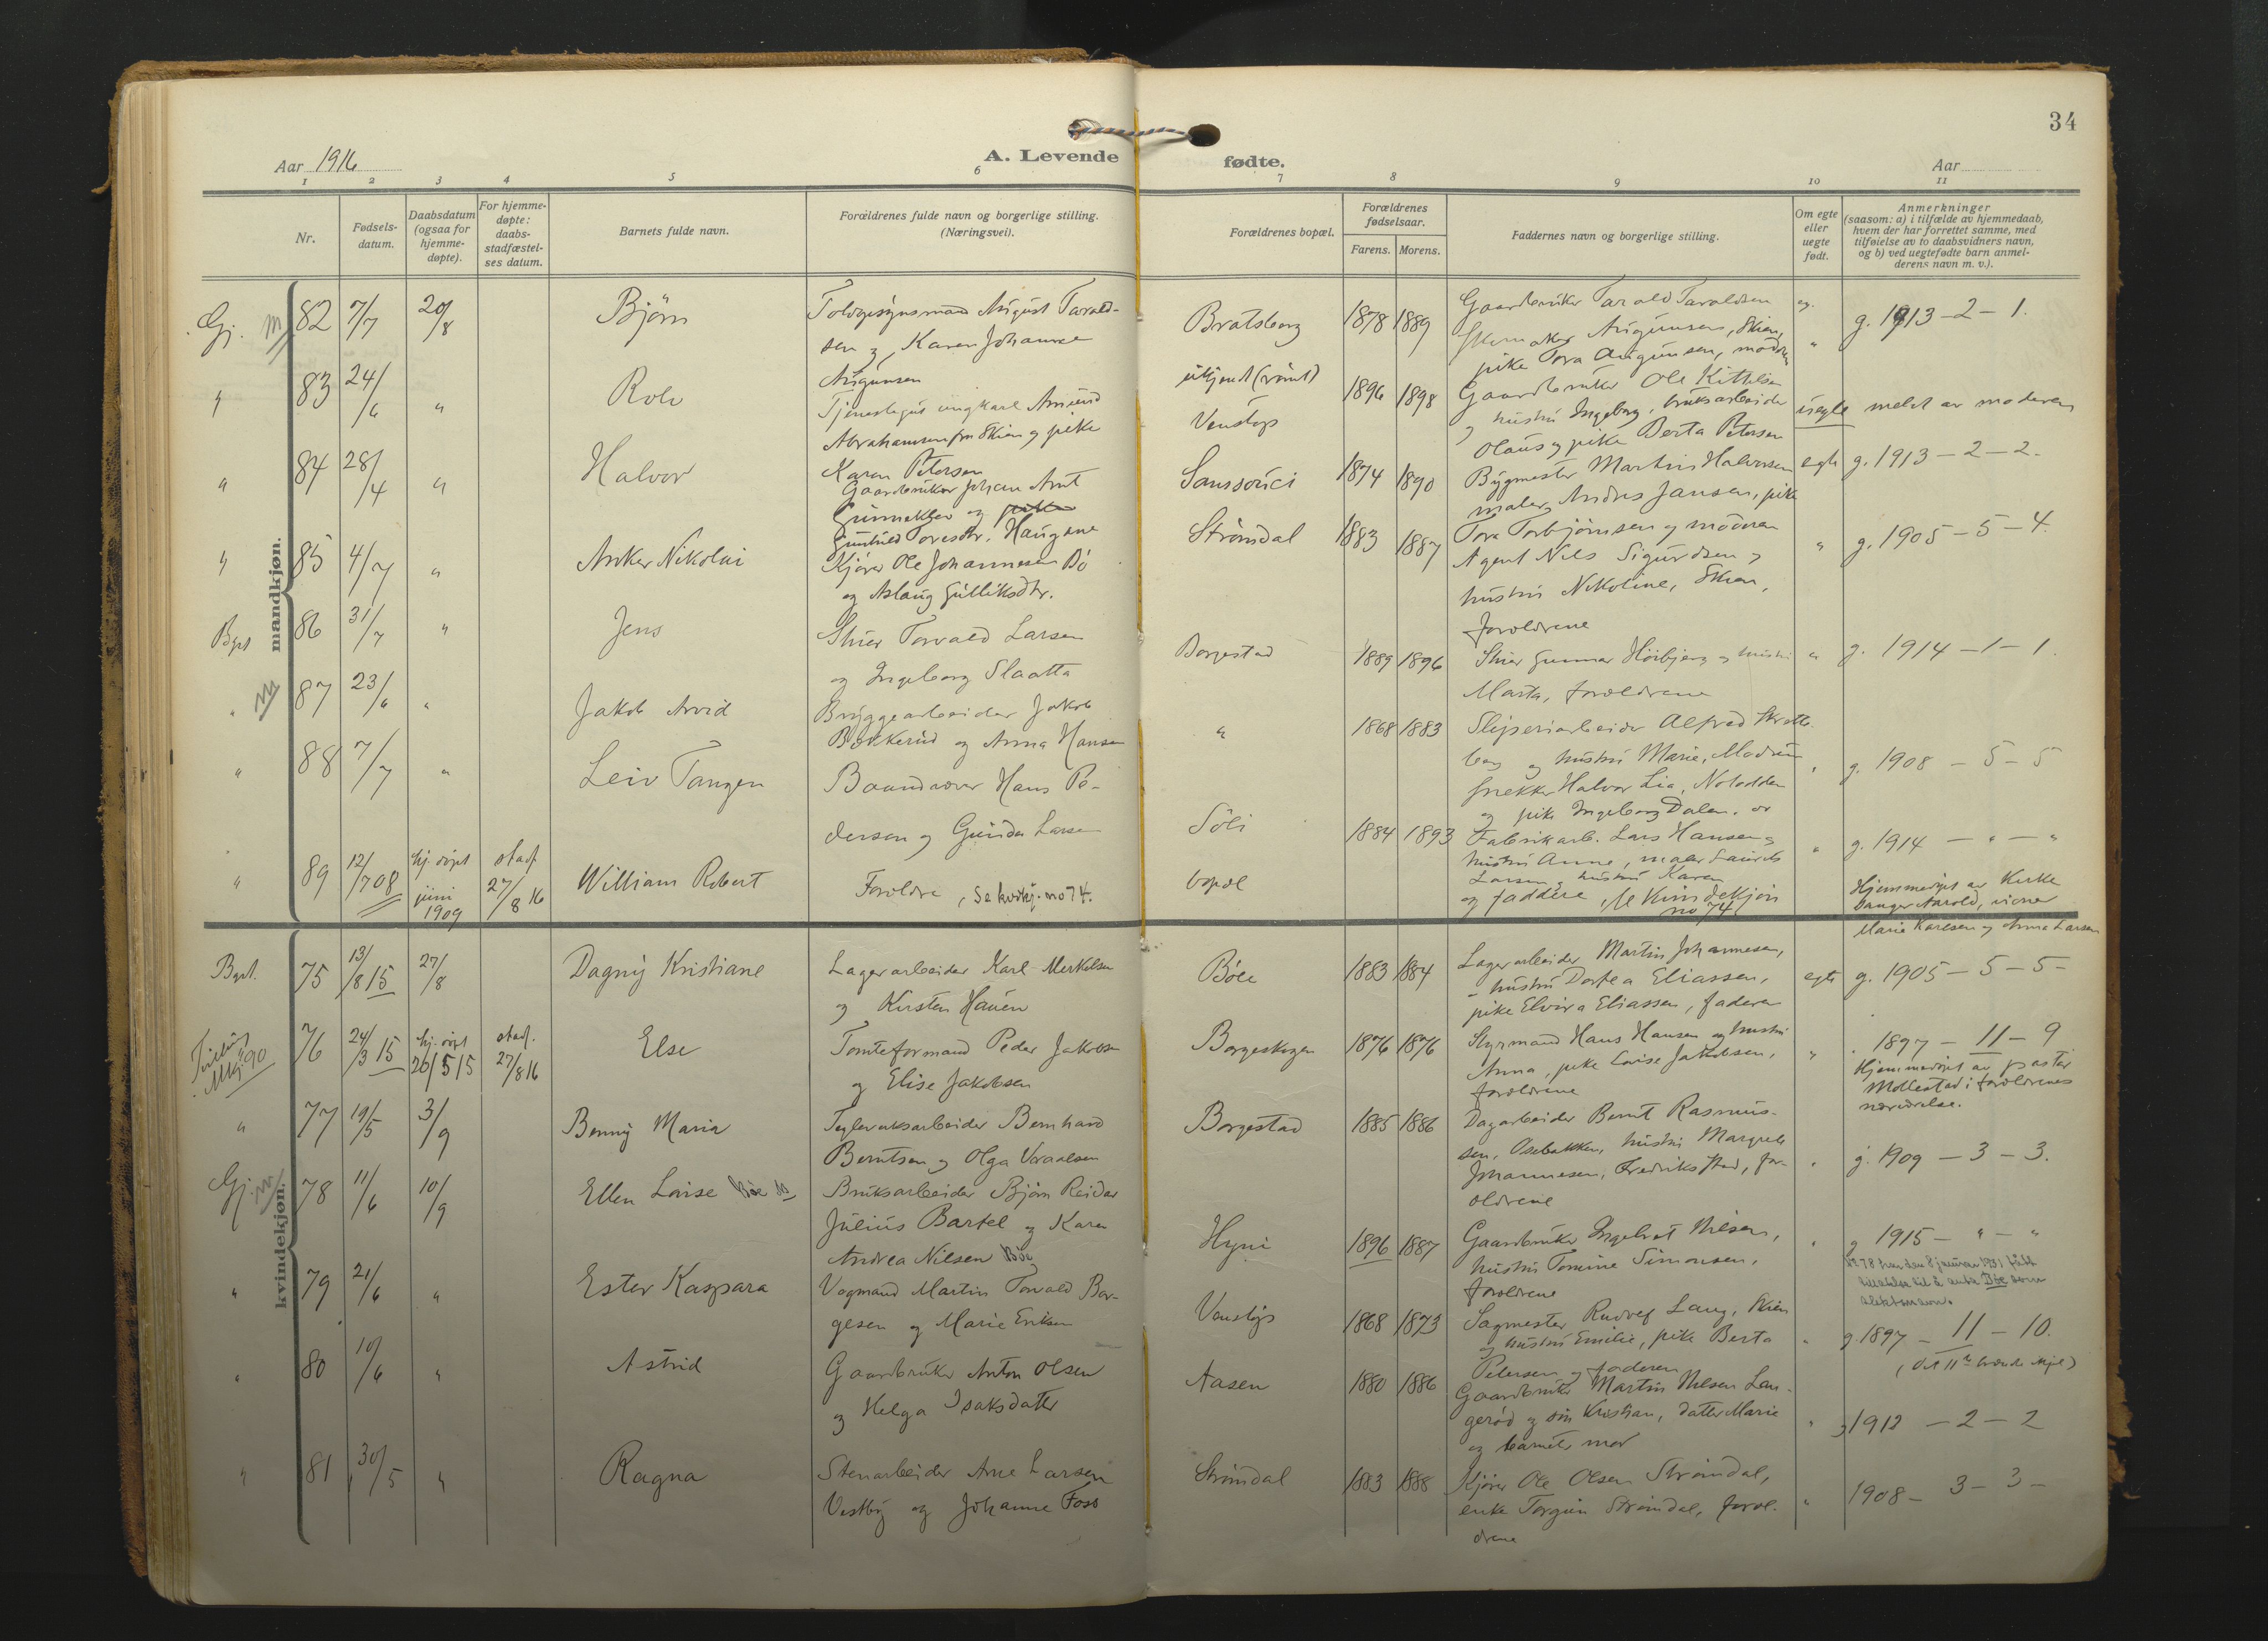 34
Aar 1916
A. Levende fødte.
Aar
1 2 3 4 5 6 7 8 9 10 11
Nr.
Fødsels-
datum.
Daabsdatum
(ogsaa for
hjemme-
døpte).
For hjemme-
døpte:
daabs-
stadfæstel-
ses datum.
Barnets fulde navn.
Forældrenes fulde navn og borgerlige stilling.
(Næringsvei).
Forældrenes bopæl.
Forældrenes
fødselsaar.
Farens. Morens.
Faddernes navn og borgerlige stilling.
Om egte
eller
uegte
født.
Anmerkninger
(saasom: a) i tilfælde av hjemmedaab,
hvem der har forrettet samme, med
tilføielse av to daabsvidners navn,
og b) ved uegtefødte barn anmel-
derens navn m. v.).
mandkjøn.
Gj. 82 7/7 20/8 Bjørn
August Tarald-
sen og Karen Johanne
Bratsberg 1878 1889
Gaardbruker Tarald Taraldsen
Skien,
pike Tora
g. 1913-2-1.
" 83 24/6 " Rolv
Tjenestegut ungkarl Amund
Abrahamsen fra Skien og pike
Karen Petersen
ukjendt (rømt)
Venstøp 1896 1898
Gaardbruker Ole Kittilsen
og hustru Ingeborg, bruksarbeider
Olaus og pike Berta Petersen
uegte meldt av moderen
" 84 28/4 " Halvor
Gaardbruker Johan Arnt
Gunneklev og pike
Gunhild Toresdtr. Haugene
Sanssouci 1874 1890
Bygmester Martin Halvorsen
maler Andres Jansen, pike
Tora Torbjørnsen og moderen
egte g. 1913-2-2.
" 85 4/7 " Anker Nikolai
Kjører Ole Johannesen Bø
og Aslaug Gulliksdtr.
Strømdal 1883 1887
Agent Nils Sigurdsen og
hustru Nikoline, Skien,
forældrene
" g. 1905-5-4.
Bgst 86 31/7 " Jens
Torvald Larsen
og Ingeborg Slaatta
Borgestad 1889 1896
Gunnar Høibjerg og hustru
Marta, forældrene
" g. 1914-1-1.
" 87 23/6 " Jakob Arvid
Bryggearbeider Jakob
Bakkerud og Anna Hansen
" 1868 1883
Sliperiarbeider Alfred
og hustru Marie,
snekker Halvor Lia, Notodden
og pike Ingeborg Dalen.
g. 1908-5-5
" 88 7/7 " Leiv Tangen
Baandræver Hans Pe-
dersen og Gunda Larsen
Søli 1884 1893
Fabrikarb. Lars Hansen og
hustru Anna, maler Laurits
Larsen og hustru Karen
" g. 1914 - " - "
" 89 12/7 08 hj. døpt
juni
1909
stadf.
27/8 16
William Robert
Forældre, se kvikj. no 74.
bopæl
og faddere, se kvindekjøn
no 74
Hjemmedøpt av Kirke
sanger Aarold, vidner
Marie Karlsen og Anna Larsen
kvindekjøn.
Bgst. 75 13/8 15 27/8 Dagny Kristiane
Lagerarbeider Karl Merkelsen
og Kirsten Hauen
Bøle 1883 1884
Lagerarbeider Martin Johannesen,
hustru Dortea Eliassen,
pike Elvira Eliassen, faderen
egte g. 1905-5-5-
Mkj. 90 76 24/3 15 hj. døpt
26/5 15
stadf.
27/8 16
Else
Tomteformand Peder Jakobsen
og Elise Jakobsen
Borgeskogen 1876 1876
Styrmand Hans Hansen og hustru
Anna, pike Lovise Jakobsen,
forældrene
" 1897-11-9
Hjemmedøpt av pastor
Mollestad i forældrenes
nærværelse.
" 77 19/5 3/9 Benny Maria
Teglverksarbeider Bernhard
Berntsen og Olga
Borgestad 1885 1886
Dagarbeider Bernt Rasmus-
sen, Osebakken, hustru Margrete
Johannesen, Fredriksstad, for-
ældrene
g. 1909-3-3.
Gj. 78 11/6 10/9 Ellen Lovise Bøe
Bruksarbeider Bjørn Reidar
Julius Bartel og Karen
Andrea Nilsen Bøe
Hyni 1896 1887
Gaardbruker Ingebret Nilsen,
hustru Tomine Simonsen,
forældrene
g. 1915 - " - "
Nr. 78 har den 8 januar 1931 fått
tillatelse til å anta Bøe som
slektsnavn.
" 79 21/6 " Ester Kaspara
Vogmand Martin Torvald Bør-
gesen og Marie Eriksen
Venstøp 1868 1873
Sagmester Rudolf Lang, Skien
og hustru Emilie, pike Berta
Petersen og faderen
" g. 1897-11-10.
" 80 10/6 " Astrid
Gaardbruker Anton Olsen
og Helga Isaksdatter
Aasen 1880 1886
Gaardbruker Martin Nilsen Lan-
gerød og søn Kristian, datter Marie
og barnets mor
" g 1912-2-2
" 81 30/5 " Ragna
Stenarbeider Arne Larsen
Vestby og Johanne Foss
Strømdal 1883 1888
Kjører Ole Olsen Strømdal,
enke Torgun Strømdal, foræl-
drene
" 1908-3-3-